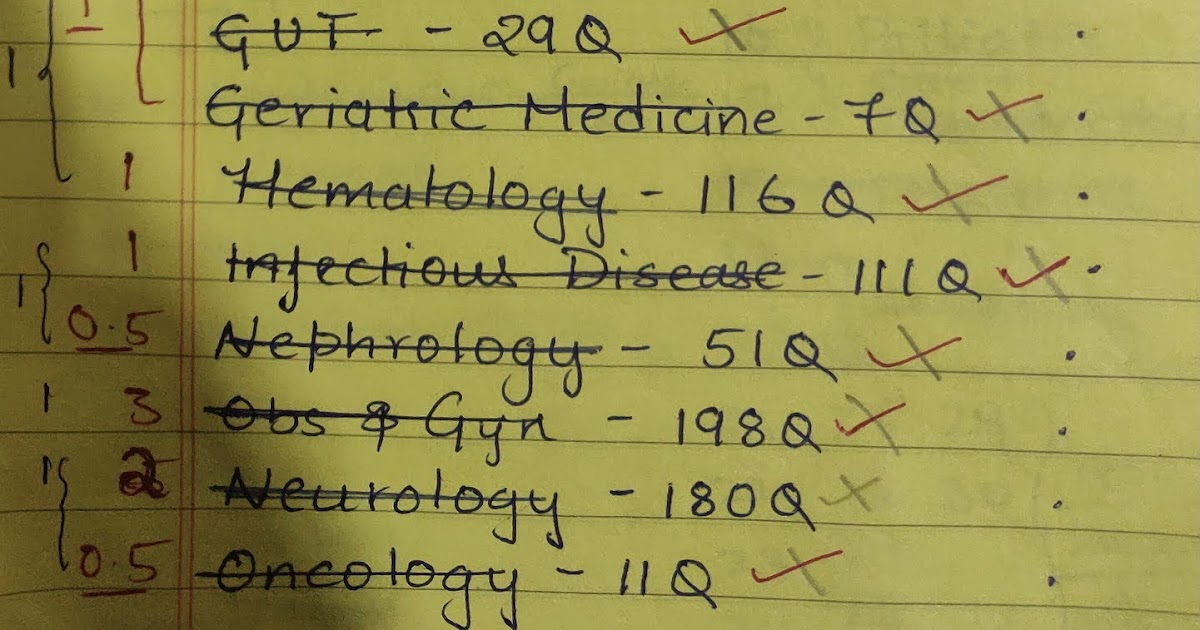 1 1 GUT - 29Q
Geriatric Medicine - 7Q
1 Hematology - 116Q
1 1 Infectious Disease - 111Q
0.5 Nephrology - 51Q
1 3 Obs & Gyn - 198Q
1 2 Neurology - 180Q
0.5 Oncology - 11Q